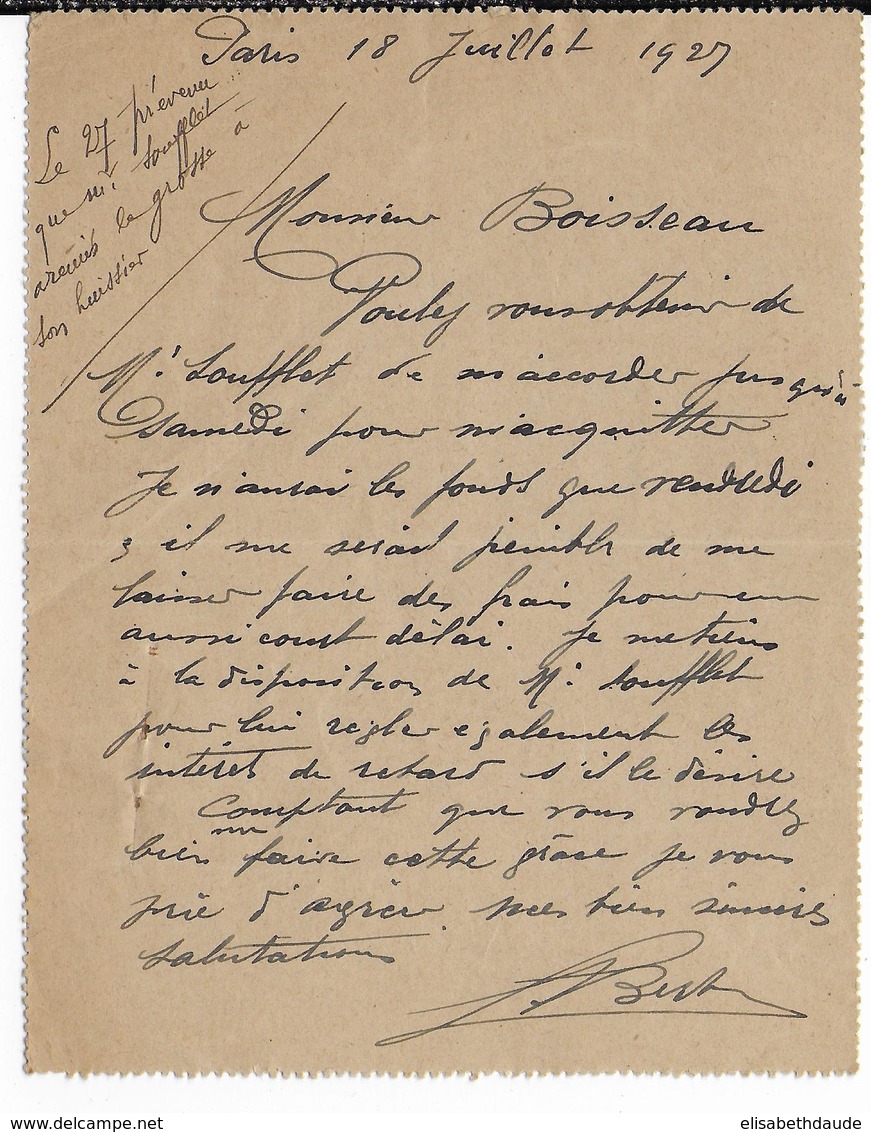 Paris 18 Juillet 1927
Le 27 prévenu
que Mr Soufflet
a remis la grosse à
son huissier
Monsieur Boisseau
Voulez vous obtenir de
Mr Soufflet de m'accorder jusqu'à
samedi pour m'acquitter
Je n'aurai les fonds que vendredi
& il me serait pénible de me
laisser faire des frais pour un
aussi court délai. Je me tiens
à la disposition de Mr Soufflet
pour lui régler également les
intérêts de retard s'il le désire
Comptant que vous voudrez
bien me faire cette grâce je vous
prie d'agréer mes bien sincères
salutations
elisabethdaude